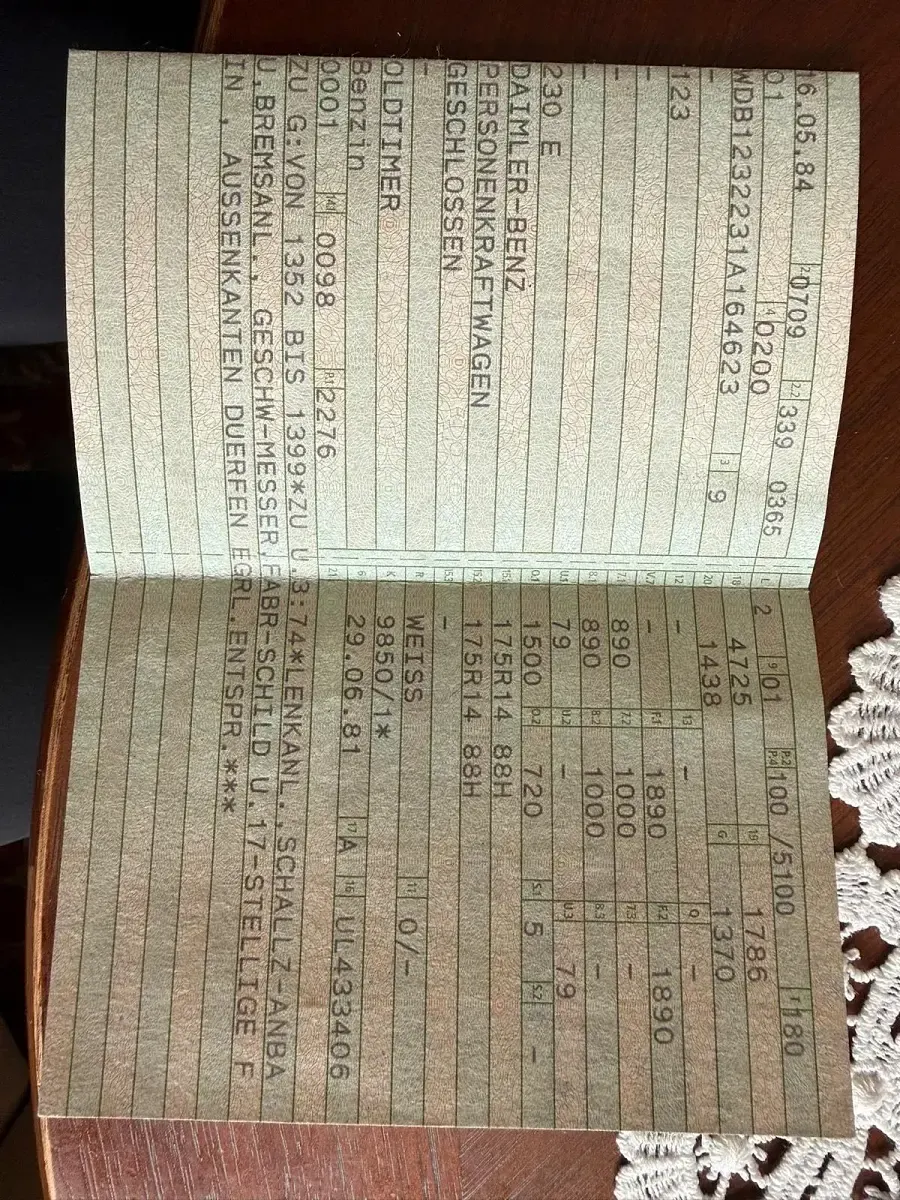 16.05.84 2 0709 2.2 339 0365
01 4 0200
WDB1232231A164623 3 9
-
123
-
-
-
-
230 E
DAIMLER-BENZ
PERSONENKRAFTWAGEN
GESCHLOSSEN
-
OLDTIMER
Benzin
0001 14 0098 P.1 2276
L 2 9 01 P.2 P.4 100 /5100 T 180
18 4725 19 1786
20 1438 G 1370
12 - 13 - Q -
V.7 - F.1 1890 F.2 1890
7.1 890 7.2 1000 7.3 -
8.1 890 8.2 1000 8.3 -
U.1 79 U.2 - U.3 79
O.1 1500 O.2 720 S.1 5 S.2 -
15.1 175R14 88H
15.2 175R14 88H
15.3 -
R WEISS 11 0/-
K 9850/1*
6 29.06.81 17 A 16 UL433406
21
ZU G:VON 1352 BIS 1399*ZU U.3:74*LENKANL.,SCHALLZ-ANBA
U,BREMSANL., GESCHW-MESSER,FABR-SCHILD U.17-STELLIGE F
IN , AUSSENKANTEN DUERFEN EGRL.ENTSPR.***